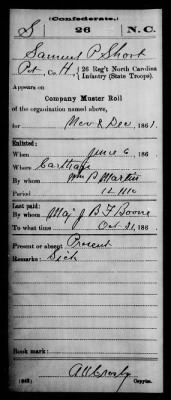 (Confederate.)
S 26 N.C.
Samuel P Short
Pvt, Co. H, 26 Reg't North Carolina
Infantry (State Troops).
Appears on
Company Muster Roll
of the organization named above,
for Nov & Dec, 1861.
Enlisted:
When June 6, 186
Where Carthage
By whom Wm P Martin
Period 12 mo
Last paid:
By whom Maj J B F Boone
To what time Oct 31, 186
Present or absent Present
Remarks: Sick
Book mark:
Copyist.